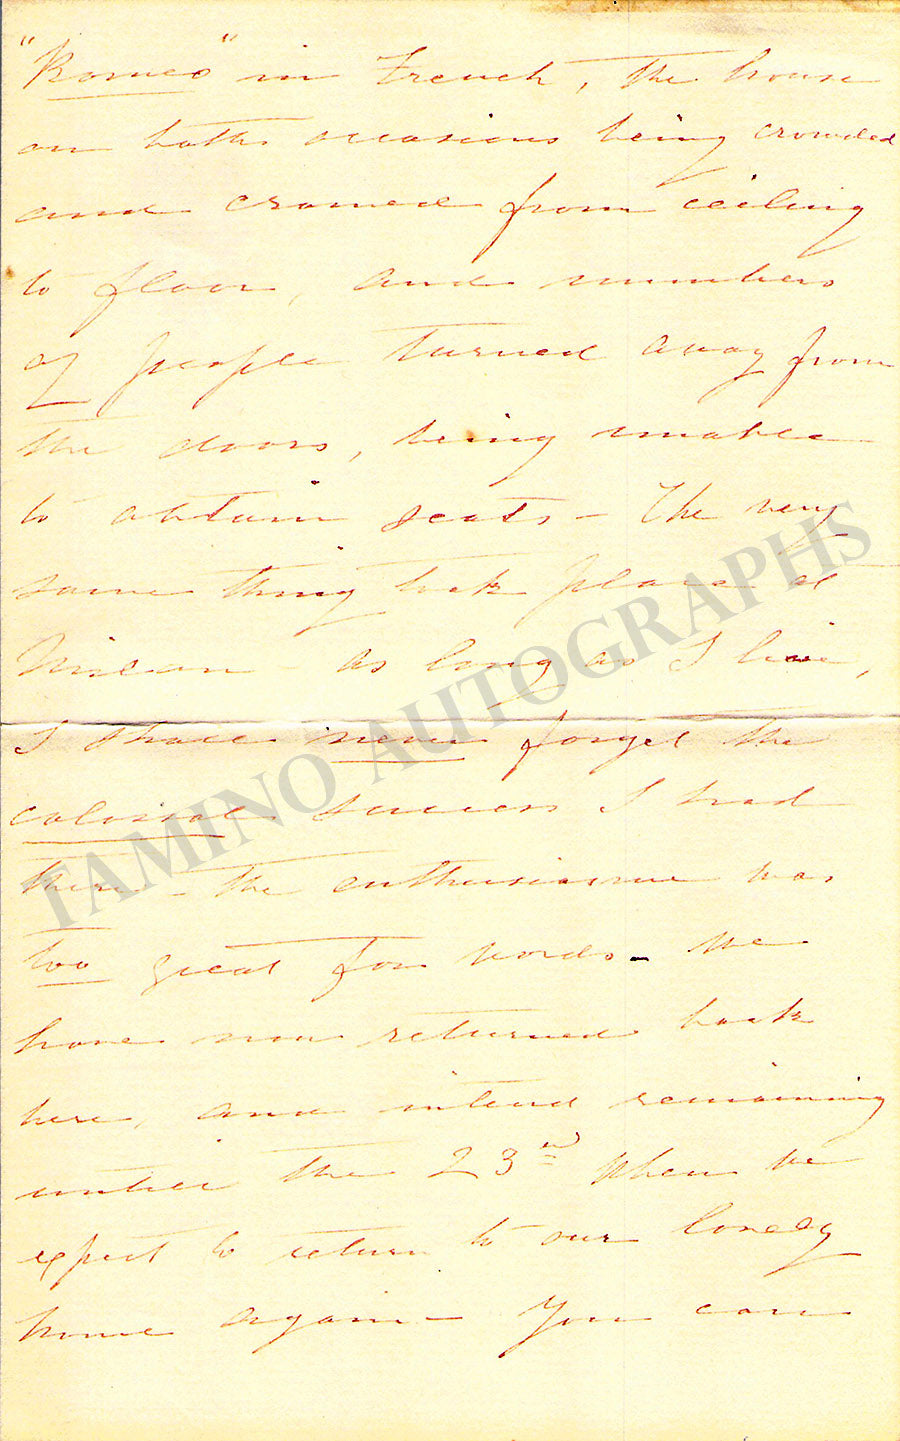 "Romeo" in French, the house
on both occasions being crowded
and cromed from ceiling
to floor, and numbers
of people turned away from
the doors, being unable
to obtain seats – The very
same thing took place at
Milan – as long as I live,
I shall never forget the
colossal success I had
there – the enthusiasme was
too great for words – We
have now returned back
here, and intend remaining
until the 23rd when we
expect to return to our lovely
home again – You can
TAMINO AUTOGRAPHS